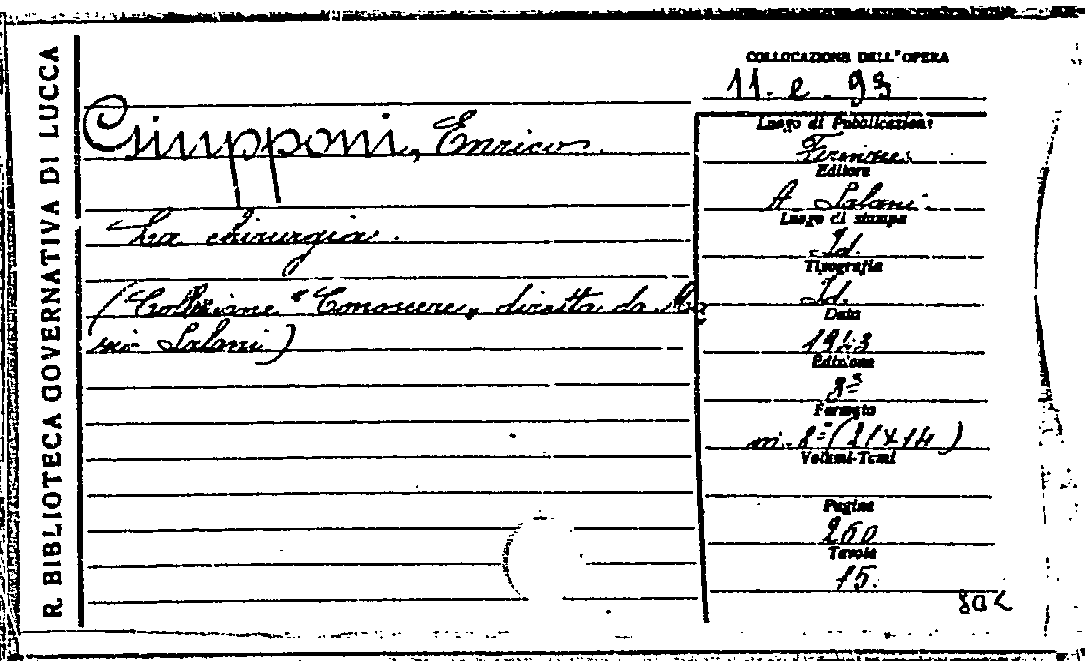 R. BIBLIOTECA GOVERNATIVA DI LUCCA
COLLOCAZIONE DELL'OPERA
11. e. 93
Giupponi, Enrico
La chirurgia.
(Collezione "Conoscere" diretta da Ma
rio Salani)
Luogo di Pubblicazione
Firenze
Editore
A. Salani
Luogo di stampa
Id.
Tipografia
Id.
Data
1943
Edizione
Formato
in-8º (21x14)
Volumi-Tomi
Pagine
260
Tavole
15.